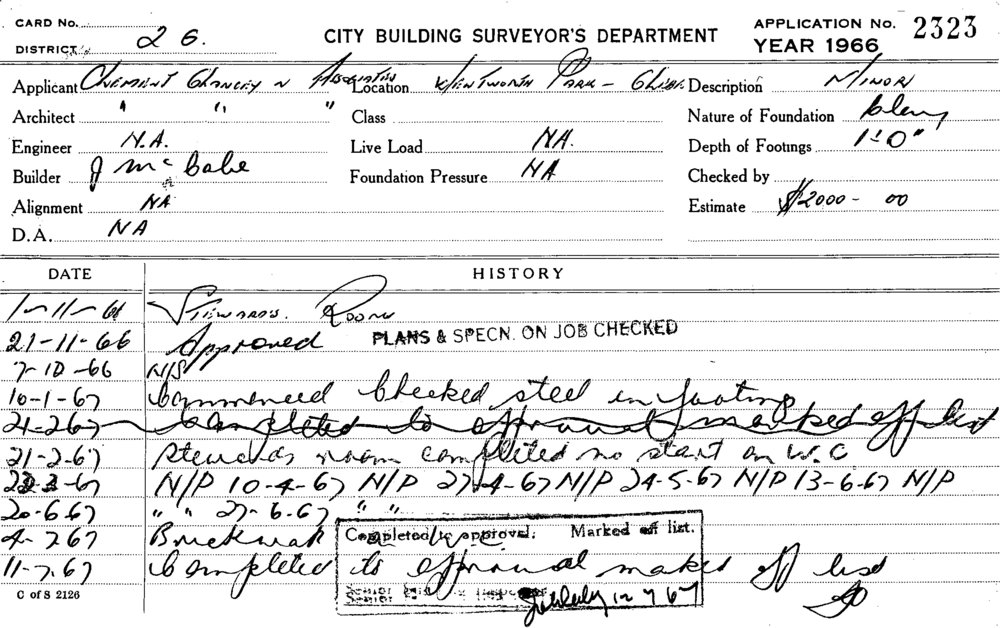 CARD No.
DISTRICT 26.
CITY BUILDING SURVEYOR'S DEPARTMENT
APPLICATION No. 2323
YEAR 1966
Applicant Clement Glancey n Associates Location Wentworth Park - Glebe Description Minor
Architect " " " Class Nature of Foundation Clay
Engineer N.A. Live Load NA. Depth of Footings 1'-0"
Builder J McCabe Foundation Pressure NA Checked by
Alignment NA Estimate $2000-00
D.A. NA
DATE HISTORY
1-11-66 Stewards. Room
21-11-66 Approved PLANS & SPECN. ON JOB CHECKED
7-10-66 N/S
10-1-67 Commenced Checked steel in footing
21-2-67 Completed to approval marked off list
21-2-67 Stewards room completed no start on W.C
22-3-67 N/P 10-4-67 N/P 27-4-67 N/P 24-5-67 N/P 13-6-67 N/P
20-6-67 " " 27-6-67 " "
4-7-67 Brickwork
Completed to approval. Marked off list.
11-7-67 Completed to approval marked off list
Senior Building Inspector 12 7 67
C of S 2126